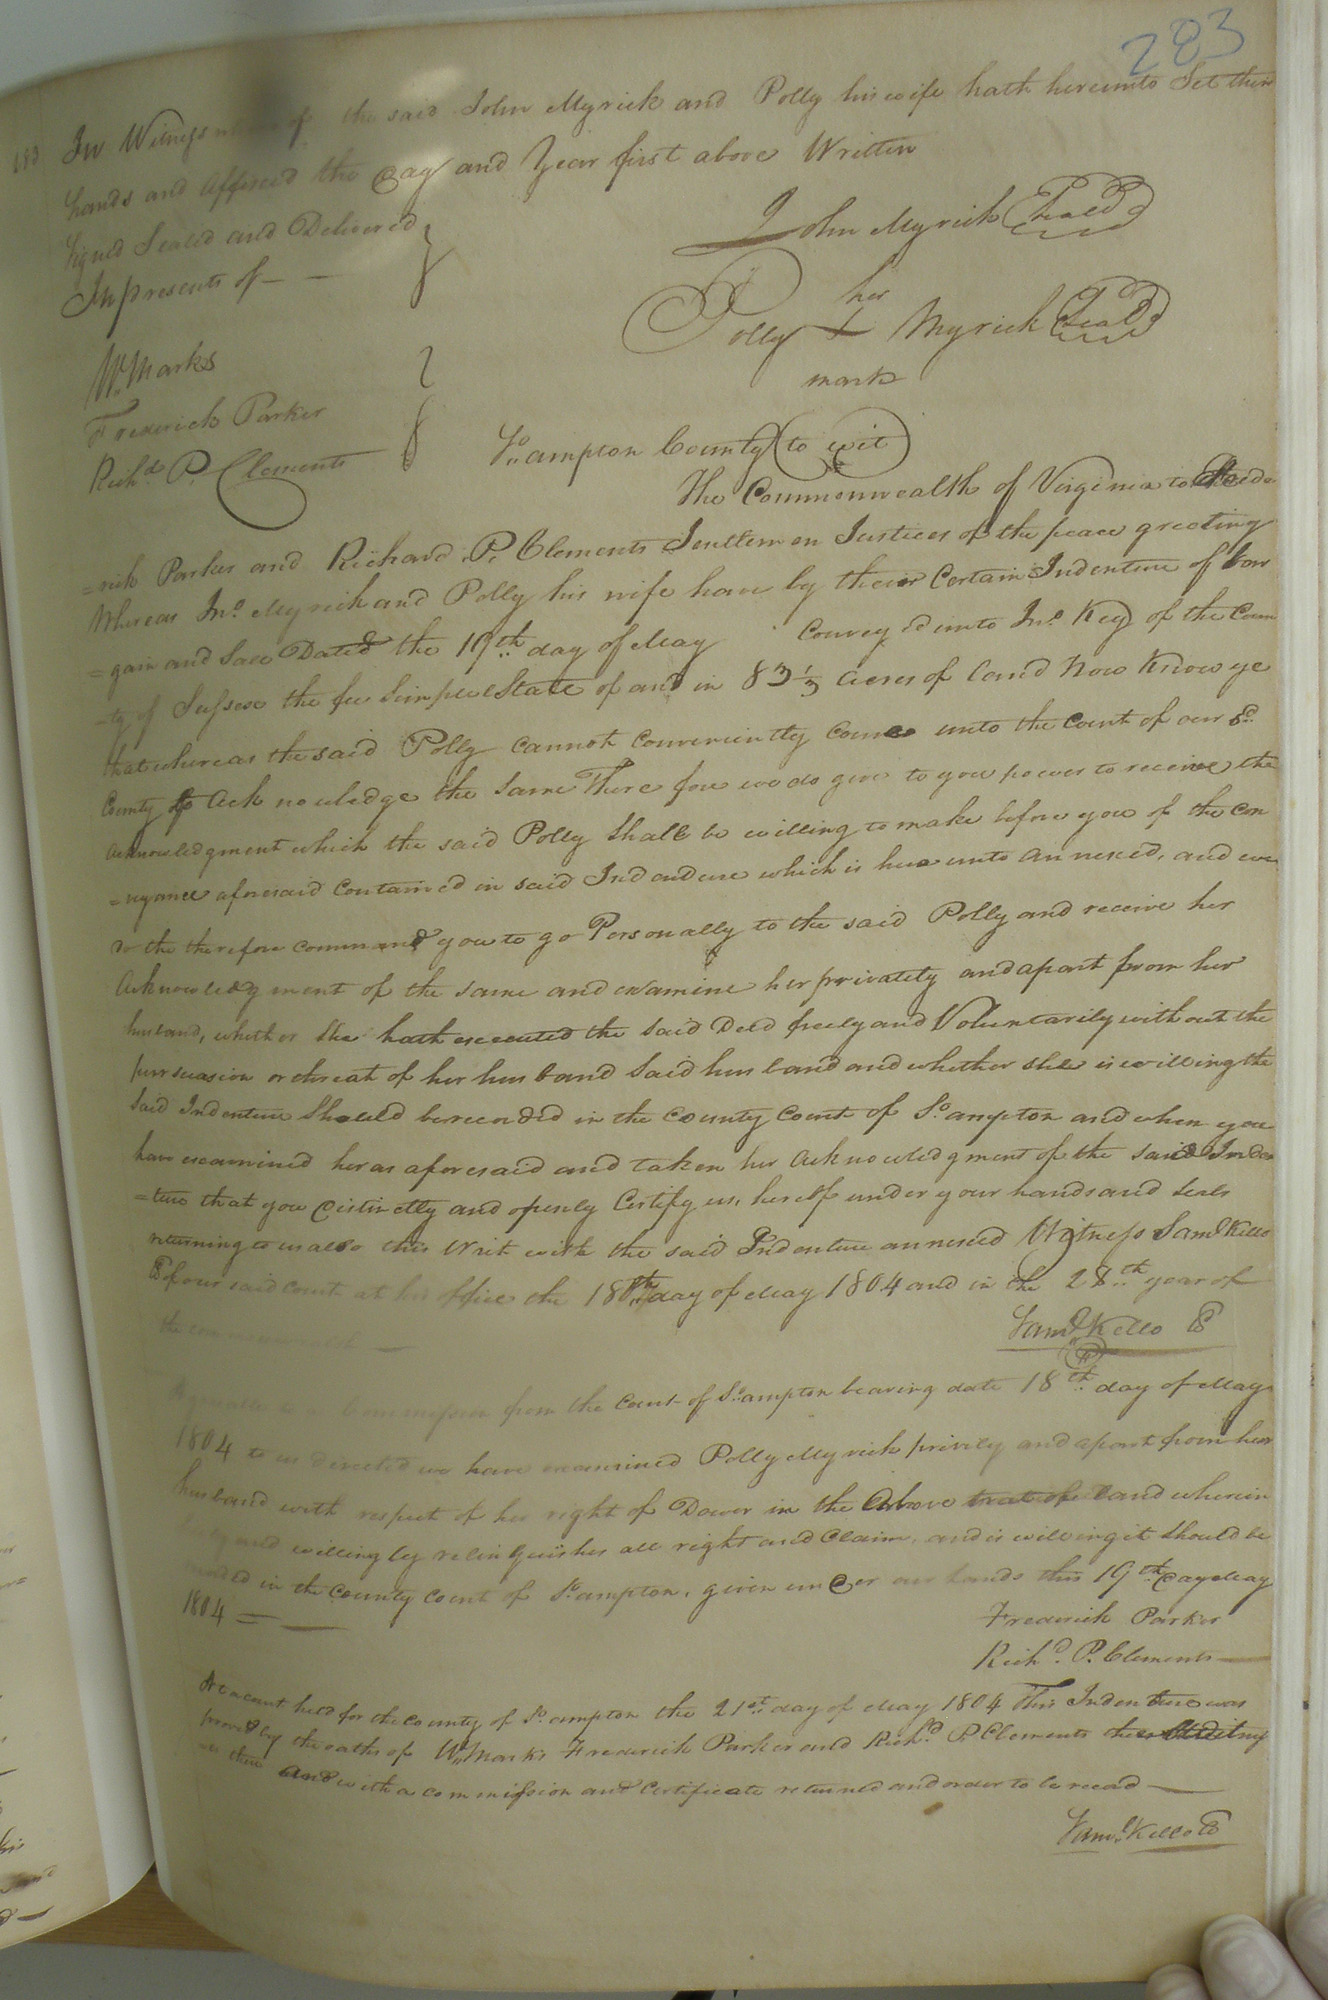 283
In Witness whereof the said John Myrick and Polly his wife hath hereunto Set their
hands and affixed the day and Year first above Written
Signed Sealed and Delivered
In presents of —  —
John Myrick (Seald)
her
Polly + Myrick (Seald)
mark
Wm. Marks
Frederick Parker
Richd. P. Clements
So.ampton County (to wit)
The Commonwealth of Virginia to Frede
=rick Parker and Richard P. Clements Gentlemen Justices of the peace greeting
Whereas Jno. Myrick and Polly his wife have by their Certain Indenture of bar
=gain and Sale Dated the 19th day of May Convey'd unto Jno. Key of the Coun
=ty of Sussex the fee Simple Estate of and in 83 1/3 acres of land Now Know ye
that whereas the said Polly cannot conveniently come unto the Court of our sd.
County to Acknowledge the Same There fore we do give to you power to receive the
acknowledgment which the said Polly Shall be willing to make before you of the Con
=veyance aforesaid Contained in said Indendure which is here unto annexed, and we
do the therefore command you to go Personally to the said Polly and receive her
Acknowledgment of the same and examine her privately and apart from her
husband, whether She hath executed the said Deed freely and Voluntarily with out the
perrsuasion or threat of her husband Said husband and whether she is willing the
Said Indenture Should be recorded in the County Court of So.ampton and when you
have examined her as aforesaid and taken her Acknowledgment of the said Inden
=ture that you Distinctly and openly Certify us, hereof under your hands and seals
returning to us also this Writ with the said Indenture annexed Witness Saml Kello
C of our said Court at his office the 18th day of May 1804 and in the 28th year of
the commonwealth —
Saml. Kello C
Agreeable to a Commission from the Court of So.ampton bearing date 18th day of May
1804 to us directed we have examined Polly Myrick privily and apart from her
husband with respect of her right of Dower in the Above tract of land wherein
and willingly relinquishes all right and Claim, and is willing it Should be
in the County Court of So.ampton, given under our hands this 19th day May
1804 = —
Frederick Parker
Richd. P. Clements —
At a court held for the County of So.ampton the 21st day of May 1804 This Indenture was
proved by the oaths of Wm. Marks Frederick Parker and Richd P. Clements the
and with a commission and Certificate returned and order to be recod —
Saml. Kello C